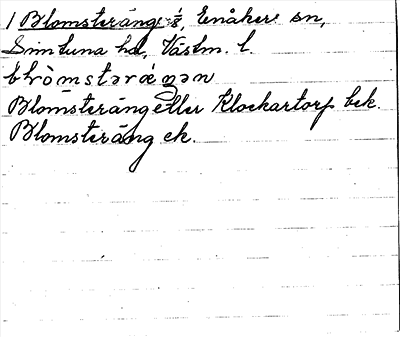 1 Blomsteräng, Enåkers sn,
Simtuna hd, Västm. l.
Blomsteräng eller Klockartorp bek.
Blomsteräng ek.